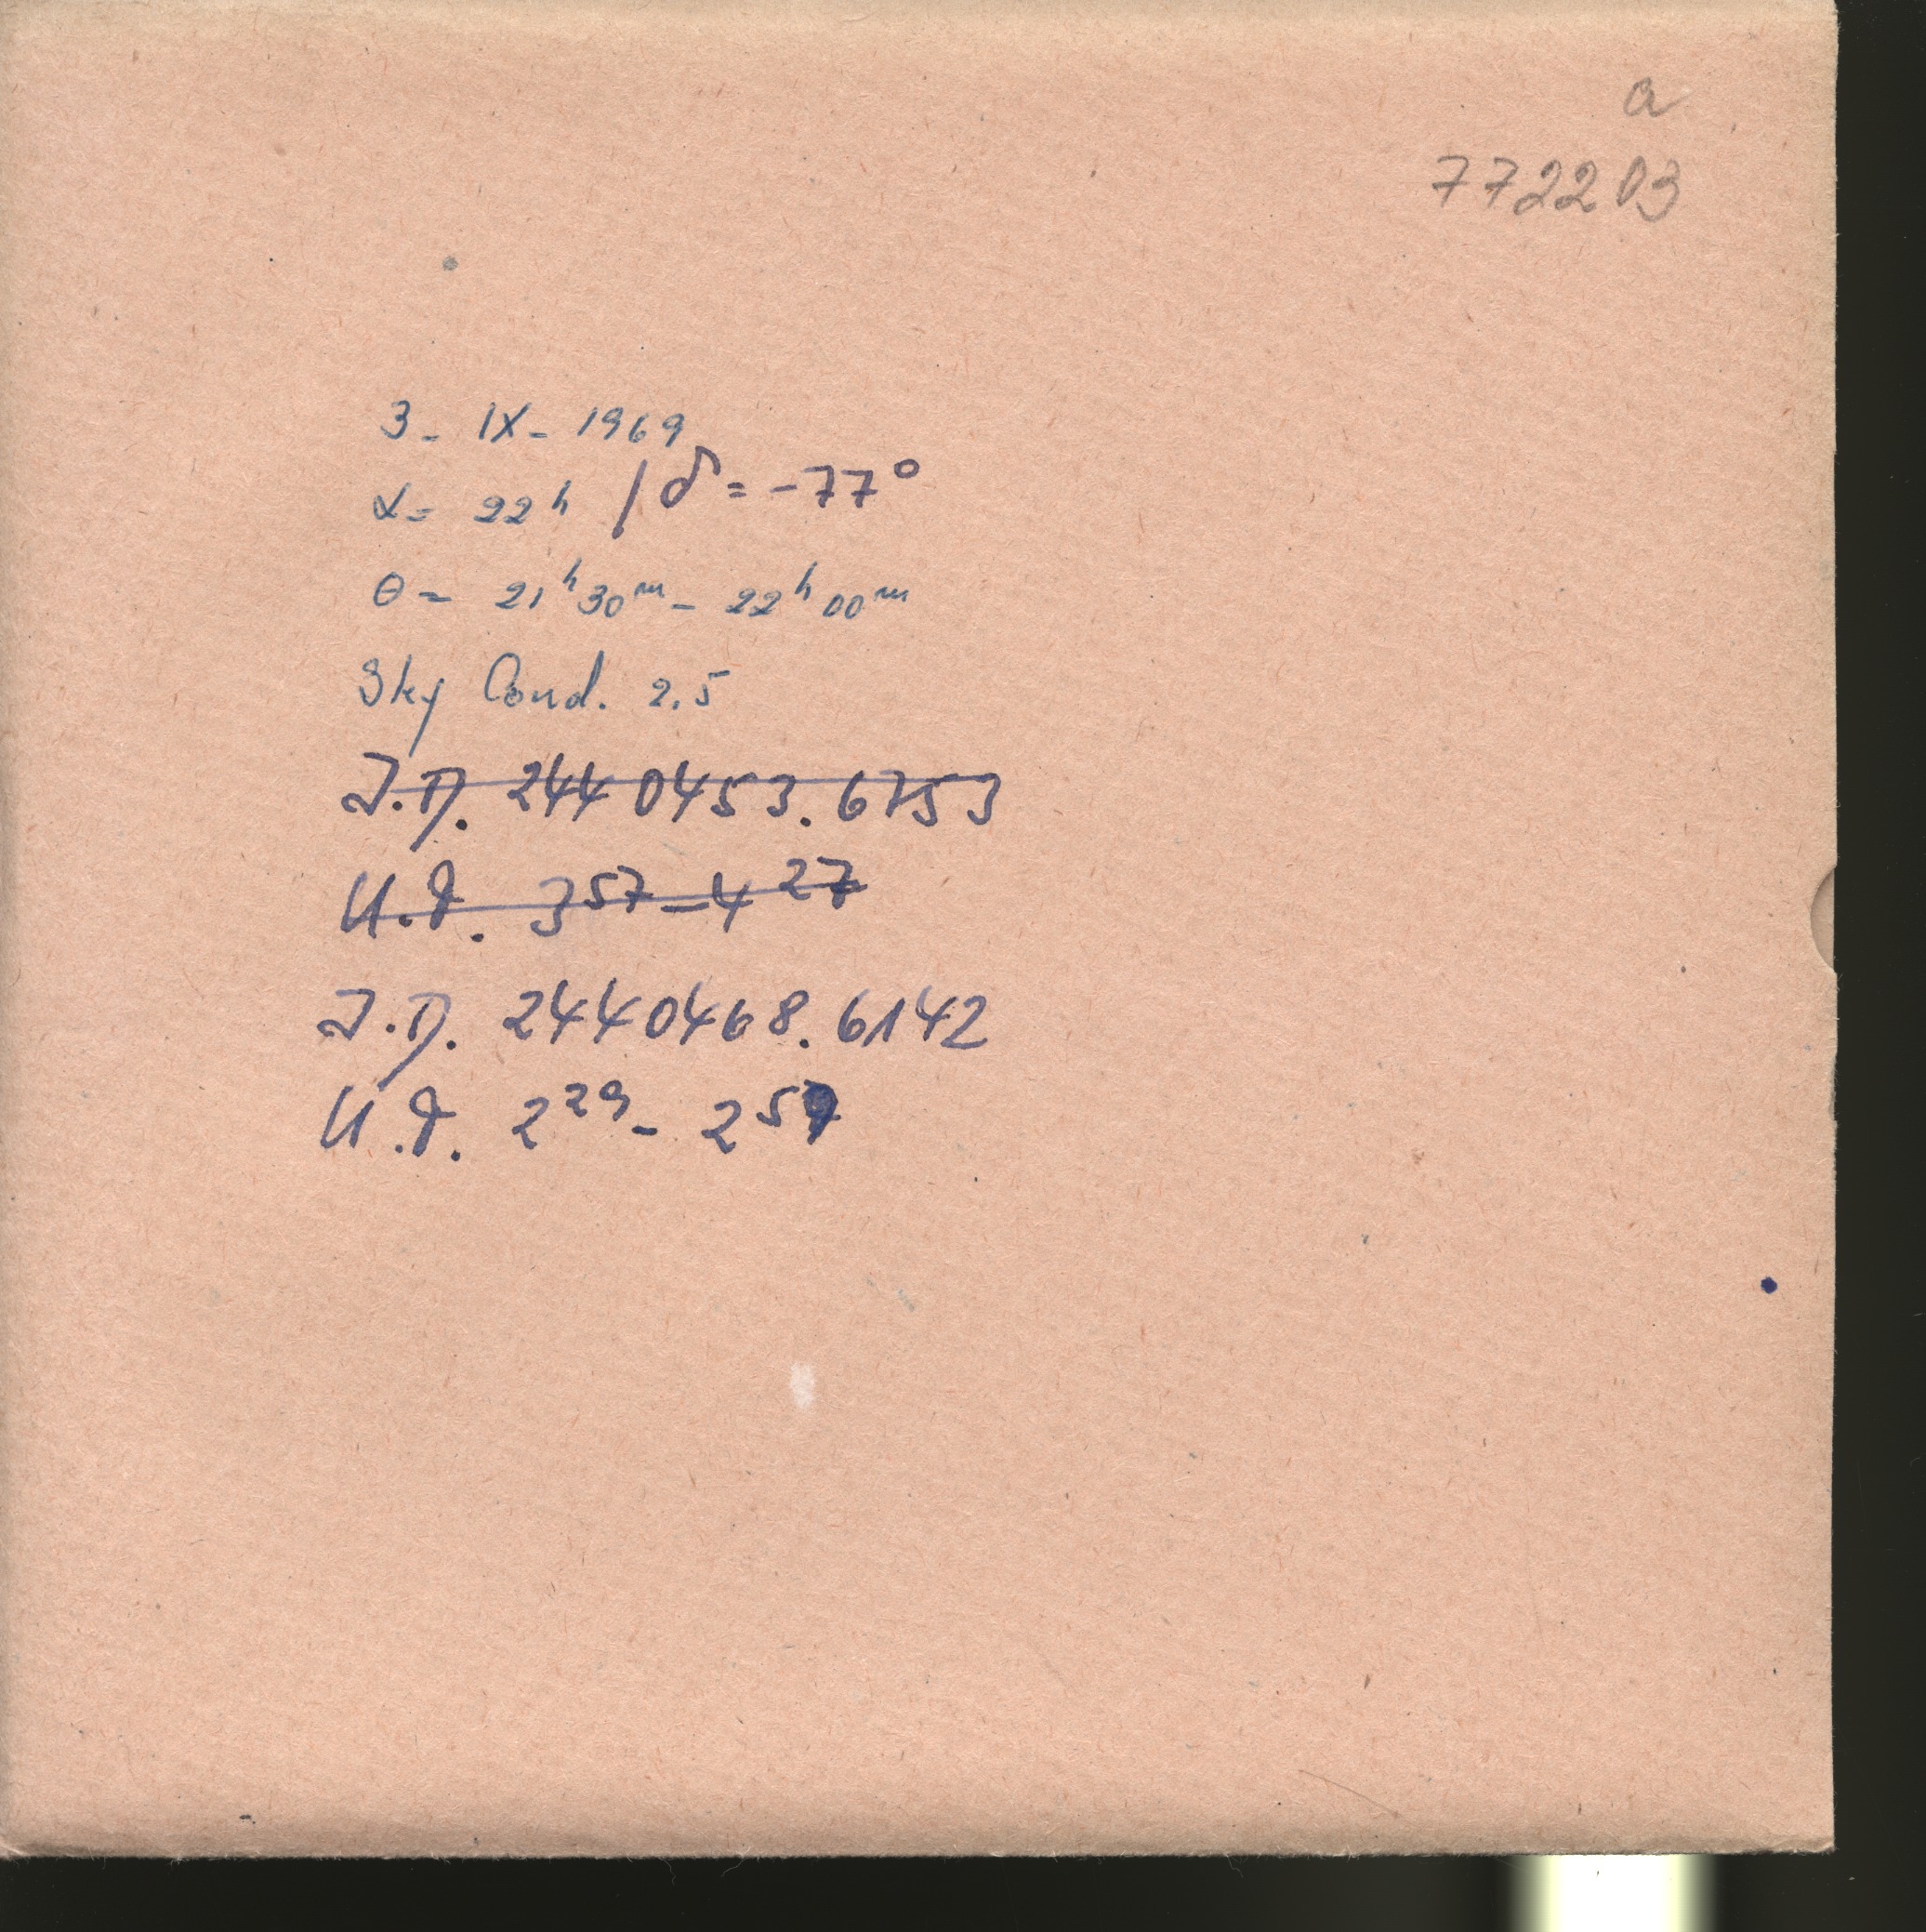 a
772203
3 - IX - 1969
α = 22ʰ / δ = -77°
θ = 21ʰ30ᵐ - 22ʰ00ᵐ
Sky Cond. 2.5
J.D. 2440453.6753
U.T. 3⁵⁷ - 4²⁷
J.D. 2440468.6142
U.T. 2²⁹ - 2⁵⁹